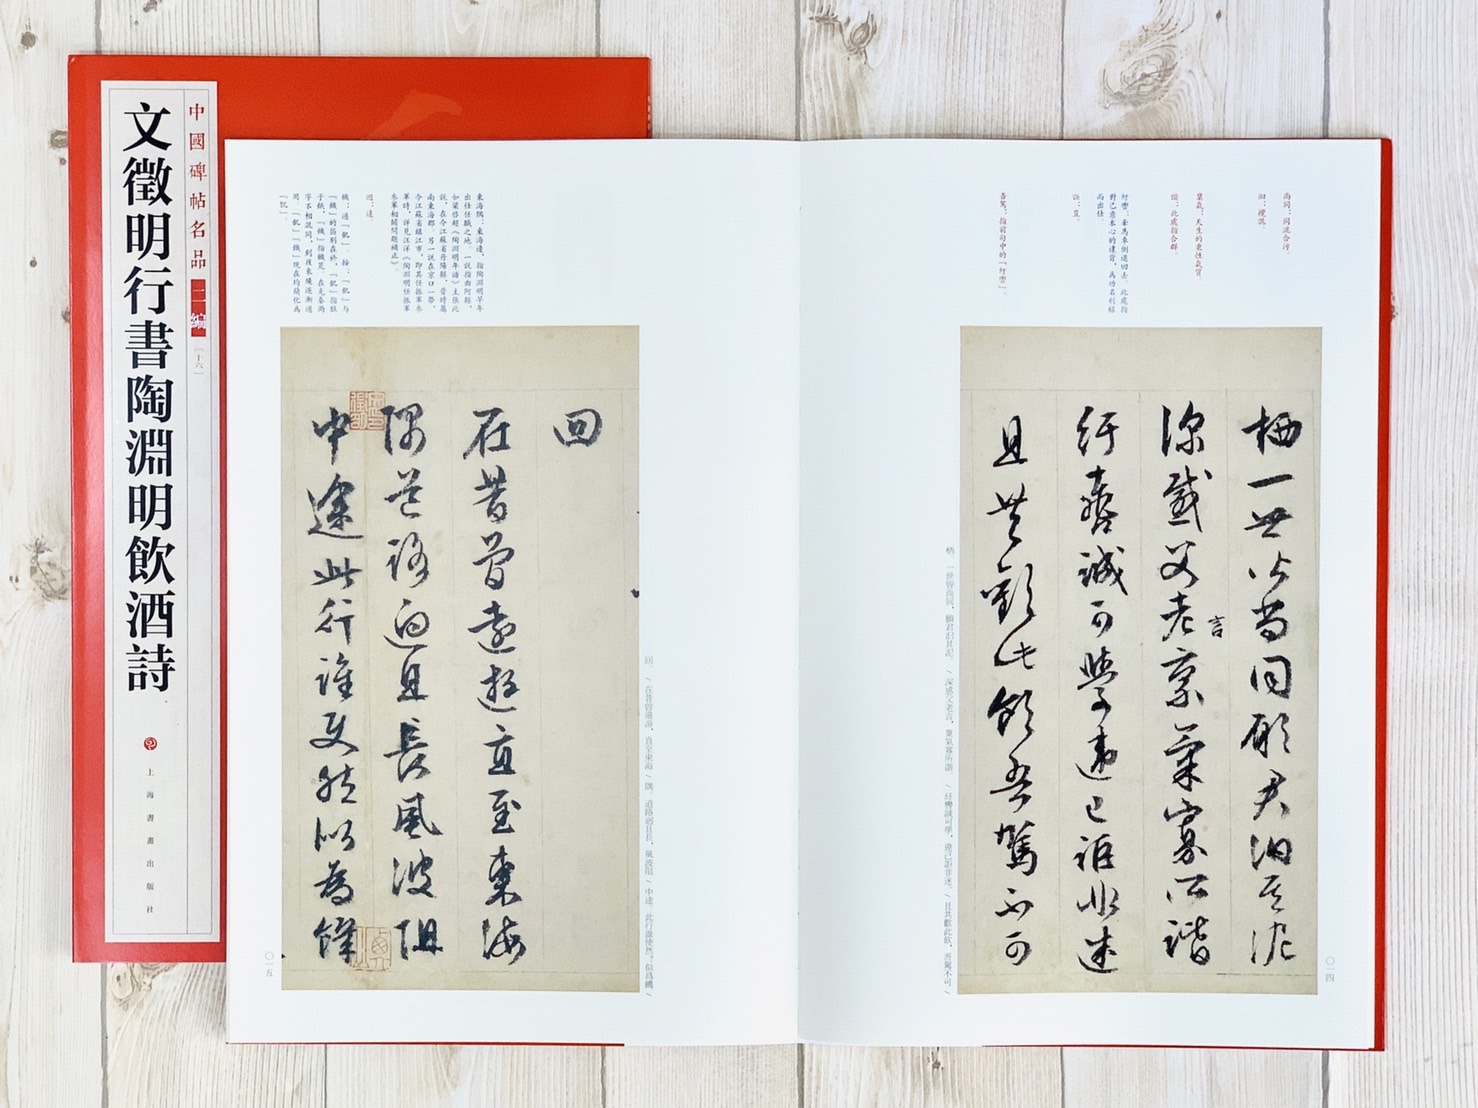 中國碑帖名品二編
[十六]
文徵明行書陶淵明飲酒詩
上海書畫出版社
尚同:同流合污。
汩:攪混。
稟氣:天生的秉性氣質。
諧:此處指合群。
紆轡:牽馬車倒退回去。此處指
對己意本心的違背,為功名利祿
而出仕
詎:豈。
吾駕:指前句中的「紆轡」。
栖一世皆尚同願君汩其泥
深感父老言稟氣寡所諧
紆轡誠可學違己詎非迷
且共歡此飲吾駕不可
栖。一世皆尚同,願君汩其泥。/深感父老言,稟氣寡所諧。/紆轡誠可學,違己詎非迷。/且共歡此飲,吾駕不可/
〇一四
東海隅:東海邊,指陶淵明早年
出仕任職之地。一說指曲阿縣,
如梁啟超《陶淵明年譜》主張此
說,在今江蘇省丹陽縣,晉時屬
南東海郡。另一說在京口一帶,
今江蘇省鎮江市,即其任振軍參
軍時,詳見江洋《陶淵明任振軍
參軍相關問題補正》
迥:遠。
饑:通「飢」。按:「飢」與
「饑」的區別在於,「飢」指肚
子餓,「饑」指饑荒。在先秦兩
字不相混同,到後來纔逐漸通
用。「飢」「饑」現在均簡化為
「饥」。
回
在昔曾遠遊直至東海
隅道路迥且長風波阻
中途此行誰使然似為饑
回。/在昔曾遠遊,直至東海/隅。道路迥且長,風波阻/中途。此行誰使然,似爲饑/
〇一五